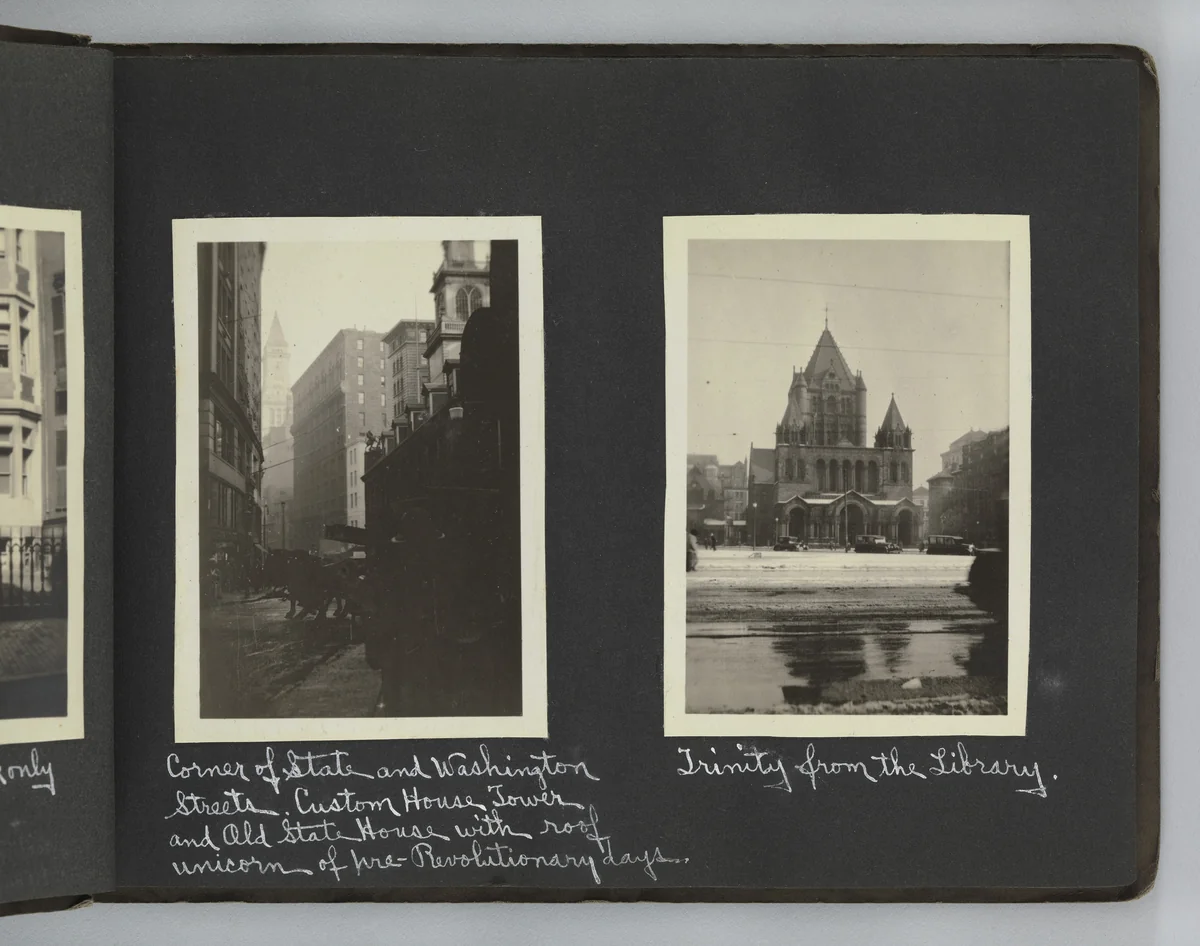 only
Corner of State and Washington
Streets. Custom House Tower
and Old State House with roof
unicorn of pre-Revolutionary days.
Trinity from the Library.